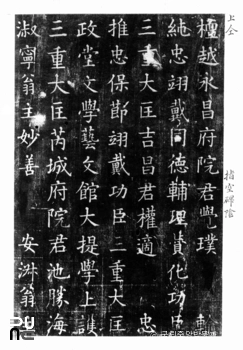 上仝
指空碑陰
檀越永昌府院君覺璞
純忠翊戴同德輔理賛化功臣
三重大匡吉昌君權適 忠
推忠保節翊戴功臣三重大匡
政堂文學藝文館大提學上護
三重大匡芮城府院君池勝海
淑寧翁主妙善 安淑翁